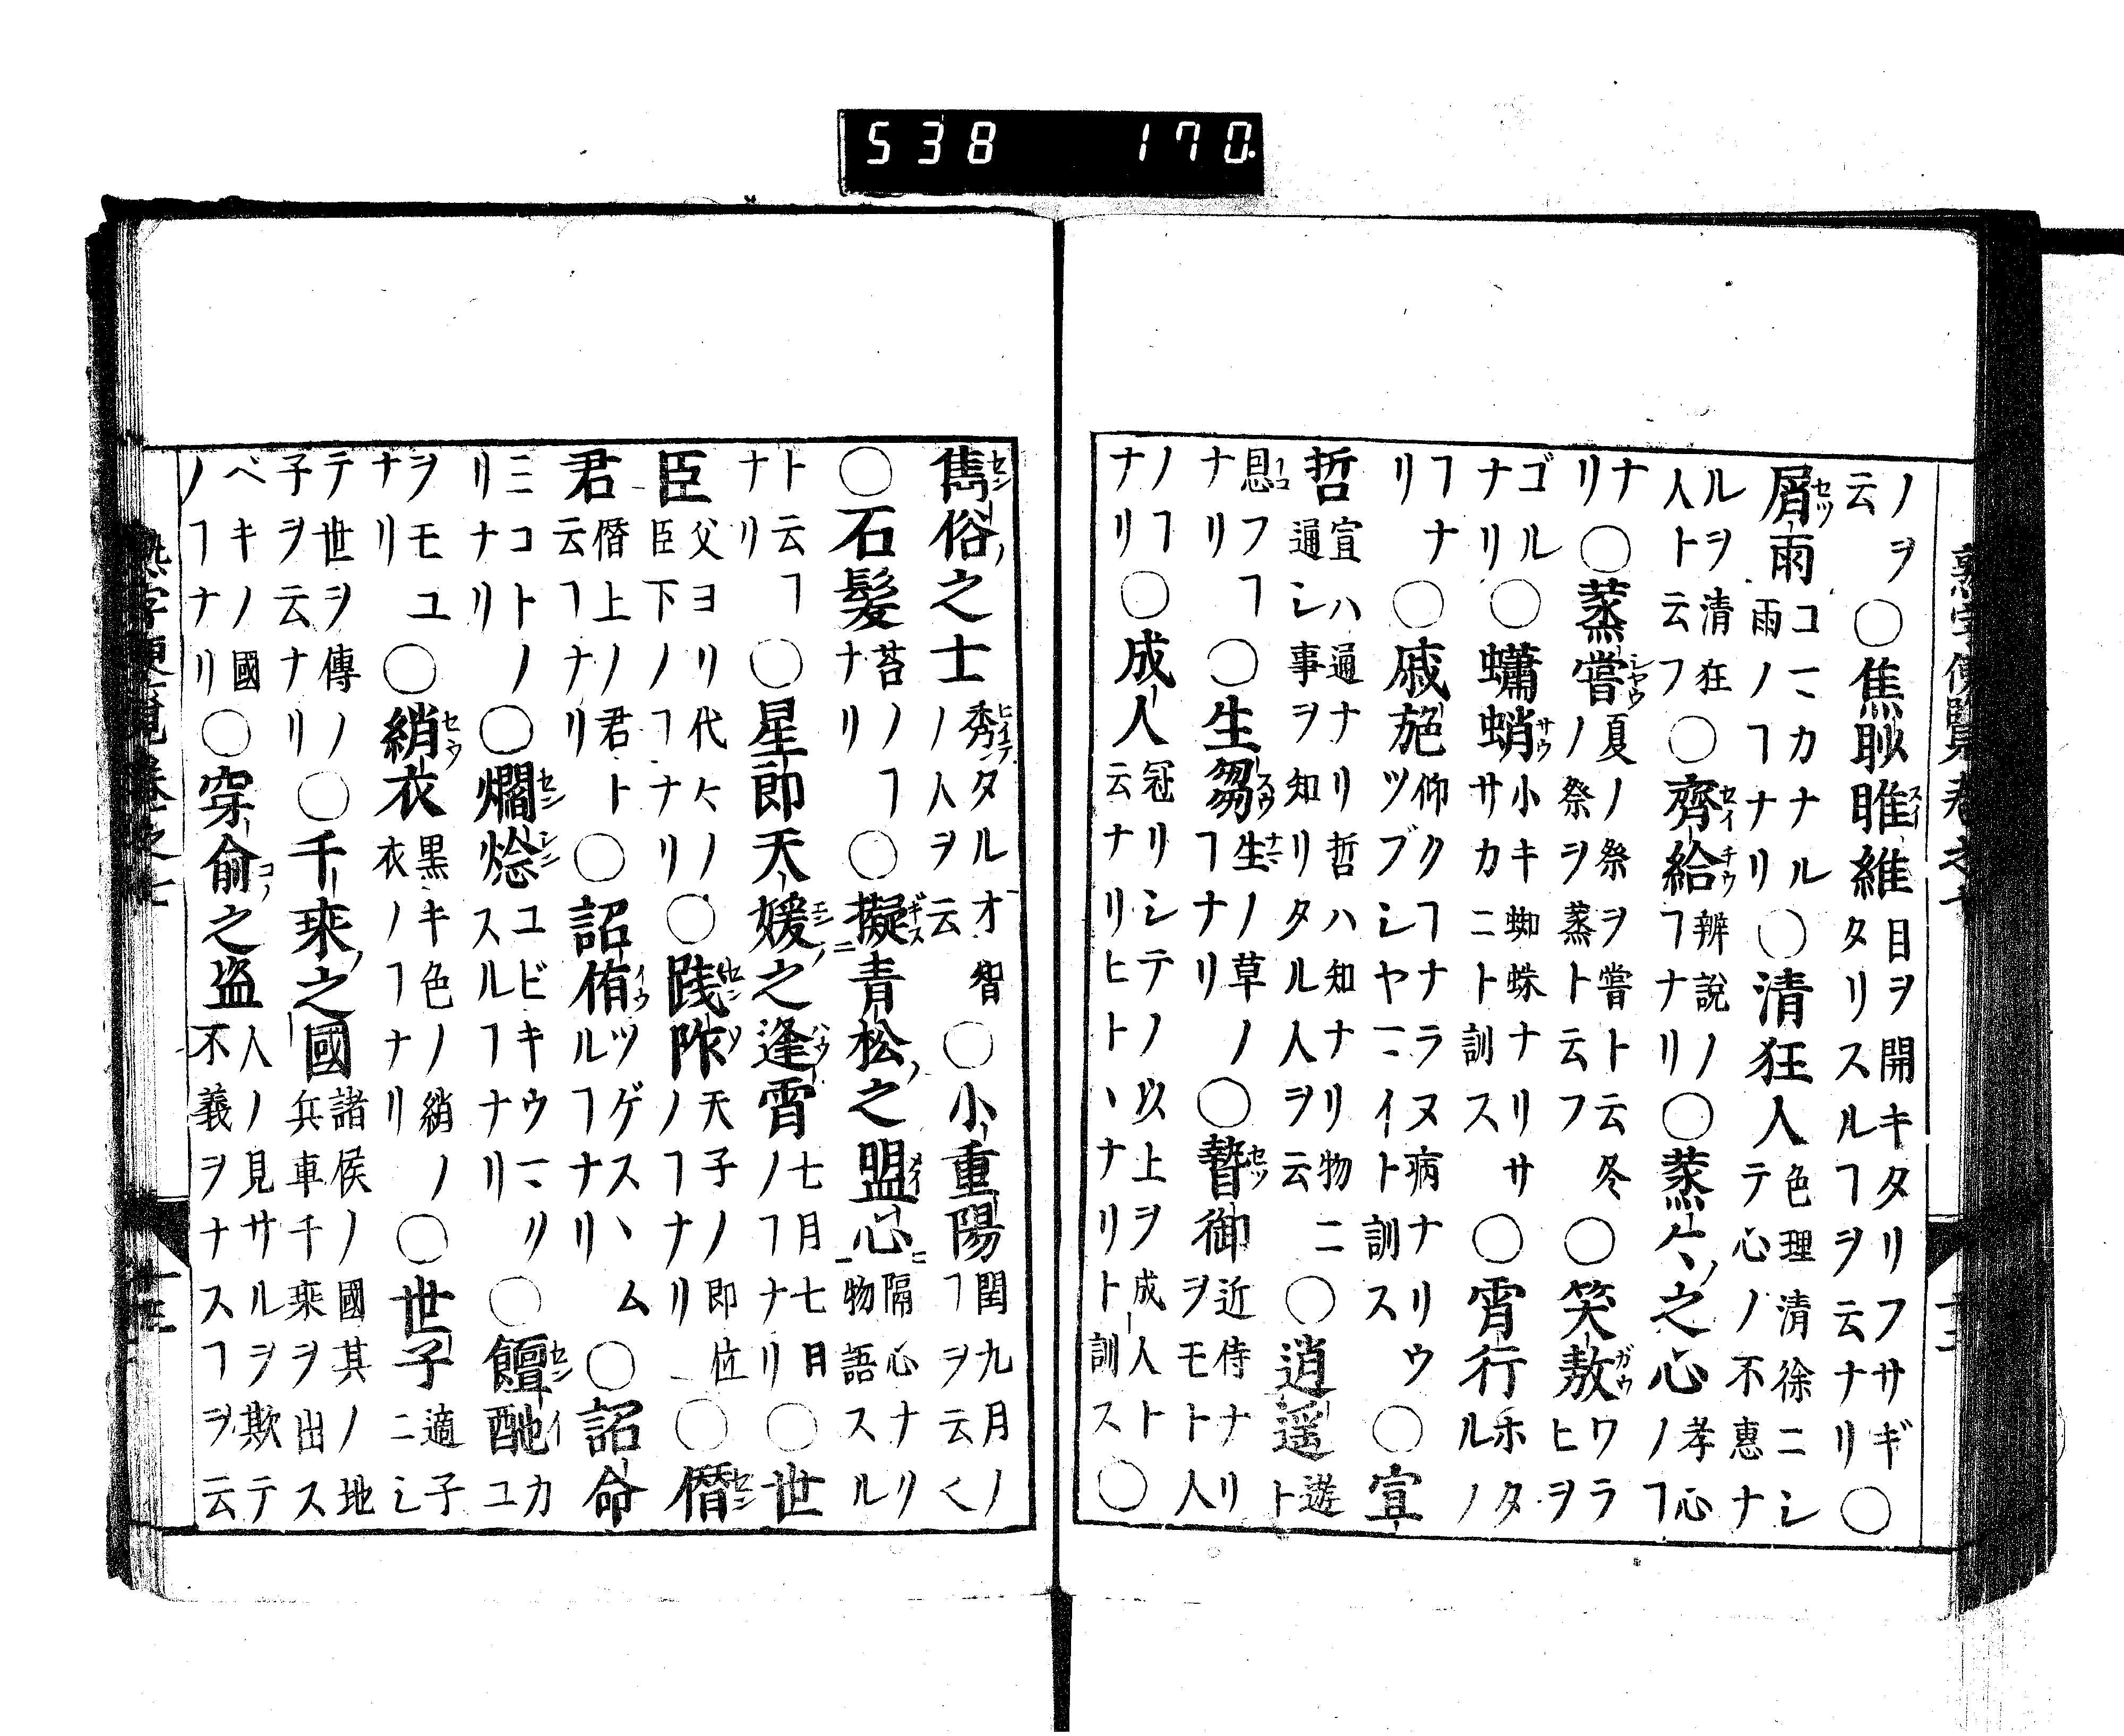 538 170.
熟字便覧巻之七 十二
ノヲ云○焦耿睢維目ヲ開キタリフサギタリスルヿヲ云ナリ○
屑雨コマカナル雨ノヿナリ○清狂人色理清徐ニシテ心ノ不惠ナ
ルヲ清狂人ト云フ○齊給辨說ノヿナリ○蒸〻之心孝心ノヿ
ナリ○蒸嘗夏ノ祭ヲ嘗ト云冬ノ祭ヲ蒸ト云フ○笑敖ワラヒヲ
ゴルナリ○蠨蛸小キ蜘蛛ナリサヽカニト訓ス○宵行ホタルノ
ヿナリ○戚施仰クヿナラヌ病ナリウツブシヤマイト訓ス○宣
哲宣ハ通ナリ哲ハ知ナリ物ニ通シ事ヲ知リタル人ヲ云○逍遥遊ト
息フヿナリ○生芻生ノ草ノヿナリ○暬御近侍ナリヲモト人
ノヿナリ○成人冠リシテノ以上ヲ云ナリヒトヽナリト訓ス○
雋俗之士秀タルオ智ノ人ヲ云○小重陽閏九月ノヿヲ云く
○石髮苔ノヿナリ○擬青松之盟心隔心ナリ物語スル
ト云ヿナリ○星郎天媛之逢霄七月七日ノヿナリ○世
臣父ヨリ代〻ノ臣下ノヿナリ○践阼天子ノ即位ノヿナリ○僭
君僭上ノ君ト云ヿナリ○詔侑ツゲスヽムルヿナリ○詔命
ミコトノリナリ○爓燅ユビキウマリスルヿナリ○饘酏カユ
ヲモユナリ○綃衣黒キ色ノ綃ノ衣ノヿナリ○世子適子ニシ
テ世ヲ傳ノ子ヲ云ナリ○千乘之國諸侯ノ國其ノ地兵車千乘ヲ出ス
ベキノ國ノヿナリ○穿窬之盗人ノ見サルヲ欺テ不義ヲナスヿヲ云
熟字便覧巻之七 十三